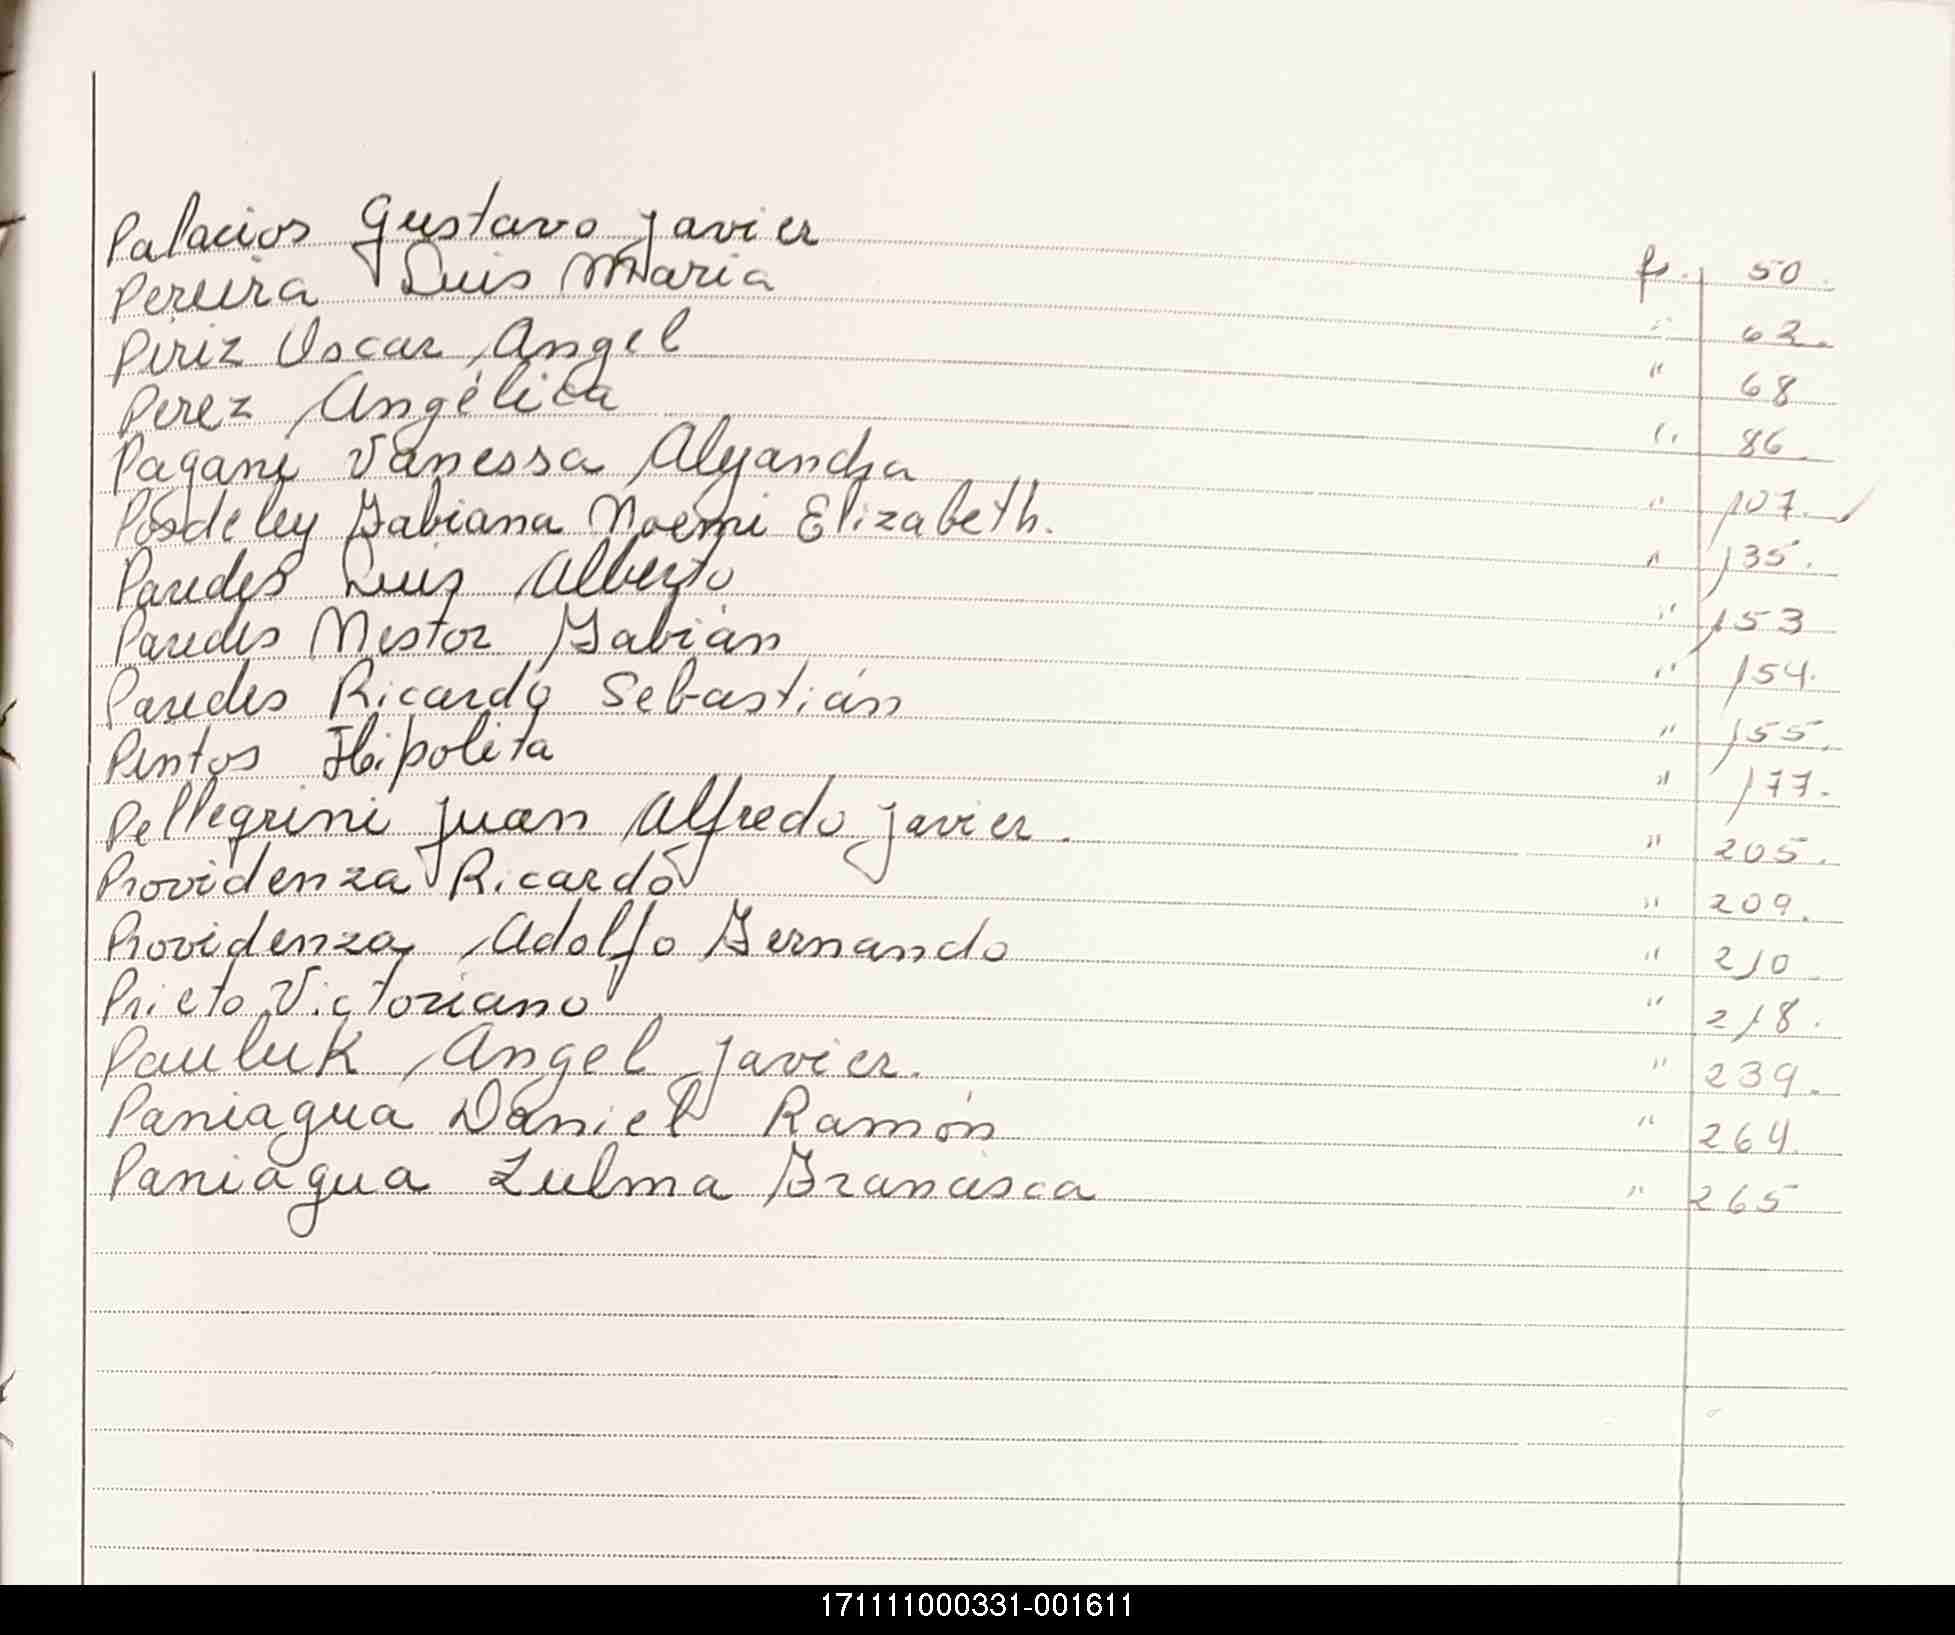 Palacios Gustavo Javier fs. 50.
Pereira Luis Maria " 62.
Piriz Oscar Angel " 68
Perez Angélica " 86
Pagani Vanessa Alejandra " 107.
Posdeley Fabiana Noemi Elizabeth. " 135.
Paredes Luis Alberto " 153
Paredes Nestor Fabián " 154.
Paredes Ricardo Sebastián " 155.
Pintos Hipolita " 177.
Pellegrini Juan Alfredo Javier. " 205.
Providenza Ricardo " 209.
Providenza Adolfo Fernando " 210
Prieto Victoriano " 218.
Pauluk Angel Javier. " 239.
Paniagua Daniel Ramón " 264.
Paniagua Zulma Francisca " 265
171111000331-001611